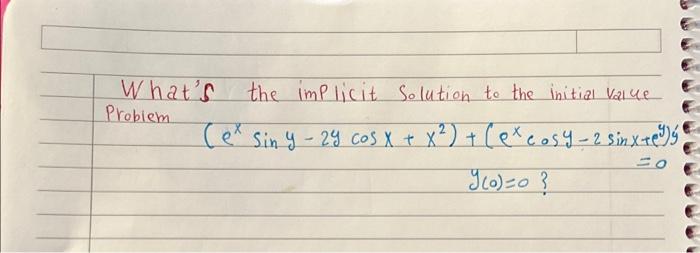 What's the implicit solution to the initial value
Problem
(e^x sin y - 2y cos x + x^2) + (e^x cos y - 2 sin x + e^y) y'
= 0
y(0) = 0 ?